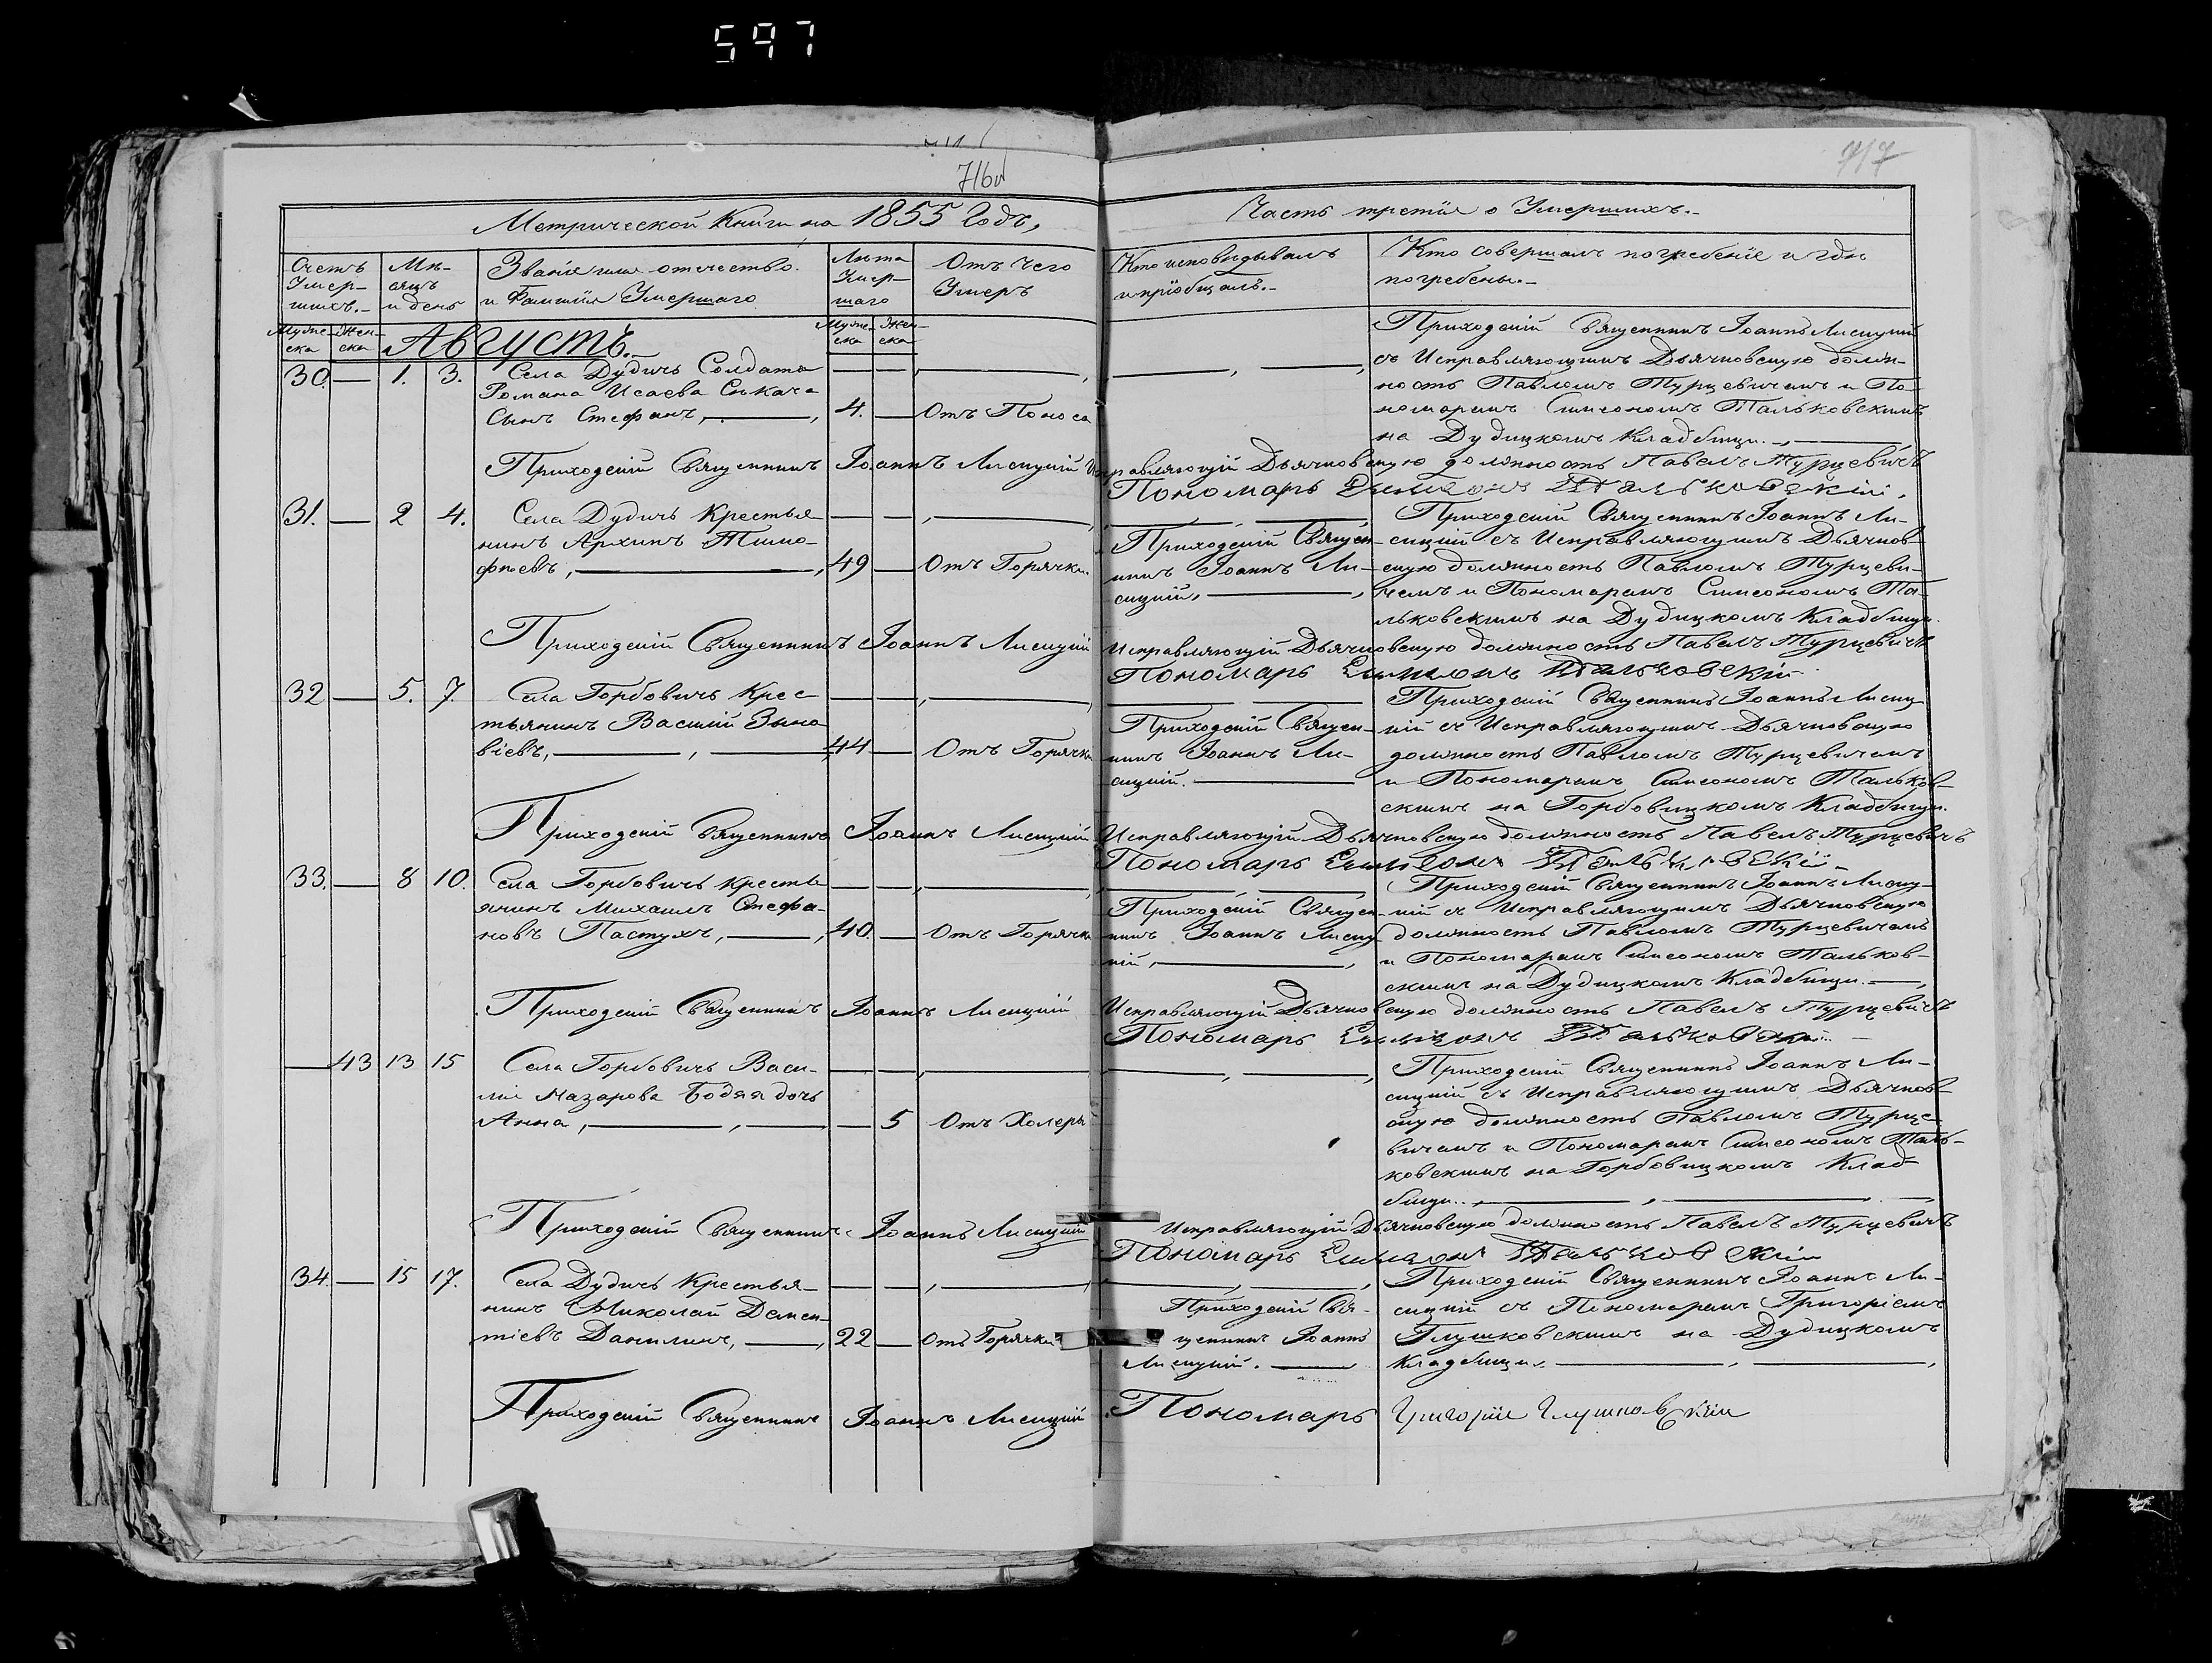 597
716об
717
Метрической Книги на 1855 Годъ,
Часть третія о Умершихъ.-
Счетъ Умер-шихъ.-
Мѣ-сяцъ и день
Званіе или отечество и Фамилія Умершаго
Лѣта Умер-шаго
Отъ чего Умеръ
Кто исповѣдывалъ и пріобщалъ.-
Кто совершалъ погребеніе и гдѣ погребены.-
Муже-ска
Жен-ска
Августъ.
Муже-ска
Жен-ска
30. — 1. 3.
Села Дудичь Солдата
Романа Исаева Сыкача
Сынъ Стефанъ, —
4. — Отъ Поноса
Приходскій Священникъ Іоаннъ Лисицкій
съ Исправляющимъ Дьячковскую долж-
ность Павломъ Турцевичемъ и По-
номаремъ Симеономъ Тальковскимъ
на Дудицкомъ Кладбищи.
Приходскій Священникъ Іоаннъ Лисицкій Исправляющій Дьячковскую должность Павелъ Турцевичъ
Пономарь Симеонъ Тальковскій.
31. — 2 4.
Села Дудичь Крестья-
нинъ Архипъ Тимо-
фѣевъ, —
49 — Отъ Горячки
Приходскій Священ-
никъ Іоаннъ Ли-
сицкій, —
Приходскій Священникъ Іоаннъ Ли-
сицкій съ Исправляющимъ Дьячков-
скую должность Павломъ Турцеви-
чемъ и Пономаремъ Симеономъ Та-
льковскимъ на Дудицкомъ Кладбищи.
Приходскій Священникъ Іоаннъ Лисицкій Исправляющій Дьячковскую должность Павелъ Турцевичъ
Пономарь Симеонъ Тальковскій
32 — 5. 7.
Села Горбовичь Крес-
тьянинъ Василій Зино-
віевъ, —
44 — Отъ Горячки
Приходскій Священ-
никъ Іоаннъ Ли-
сицкій. —
Приходскій Священникъ Іоаннъ Лисиц-
кій съ Исправляющимъ Дьячковскую
должность Павломъ Турцевичемъ
и Пономаремъ Симеономъ Тальков-
скимъ на Горбовицкомъ Кладбищи.
Приходскій Священникъ Іоаннъ Лисицкій Исправляющій Дьячковскую должность Павелъ Турцевичъ
Пономарь Симеонъ Тальковскій
33. — 8 10.
Села Горбовичь Кресть-
янинъ Михаилъ Стефа-
новъ Пастухъ, —
40. — Отъ Горячки
Приходскій Священ-
никъ Іоаннъ Лисиц-
кій, —
Приходскій Священникъ Іоаннъ Лисиц-
кій съ Исправляющимъ Дьячковскую
должность Павломъ Турцевичемъ
и Пономаремъ Симеономъ Тальков-
скимъ на Дудицкомъ Кладбищи. —
Приходскій Священникъ Іоаннъ Лисицкій Исправляющій Дьячковскую должность Павелъ Турцевичъ
Пономарь Симеонъ Тальковскій
— 43 13 15
Села Горбовичь Васи-
лія Назарова Бодяя дочь
Анна, —
— 5 Отъ Холеры
Приходскій Священникъ Іоаннъ Ли-
сицкій съ Исправляющимъ Дьячков-
скую должность Павломъ Турце-
вичемъ и Пономаремъ Симеономъ Таль-
ковскимъ на Горбовицкомъ Клад-
бищи.
Приходскій Священникъ Іоаннъ Лисицкій Исправляющій Дьячковскую должность Павелъ Турцевичъ
Пономарь Симеонъ Тальковскій
34. — 15 17.
Села Дудичь Крестья-
нинъ Николай Демен-
тіевъ Данилинъ, —
22 — отъ Горячки
Приходскій Свя-
щенникъ Іоаннъ
Лисицкій. —
Приходскій Священникъ Іоаннъ Ли-
сицкій съ Пономаремъ Григоріемъ
Глушковскимъ на Дудицкомъ
Кладбищи, —
Приходскій Священникъ Іоаннъ Лисицкій Пономарь Григорій Глушковскій